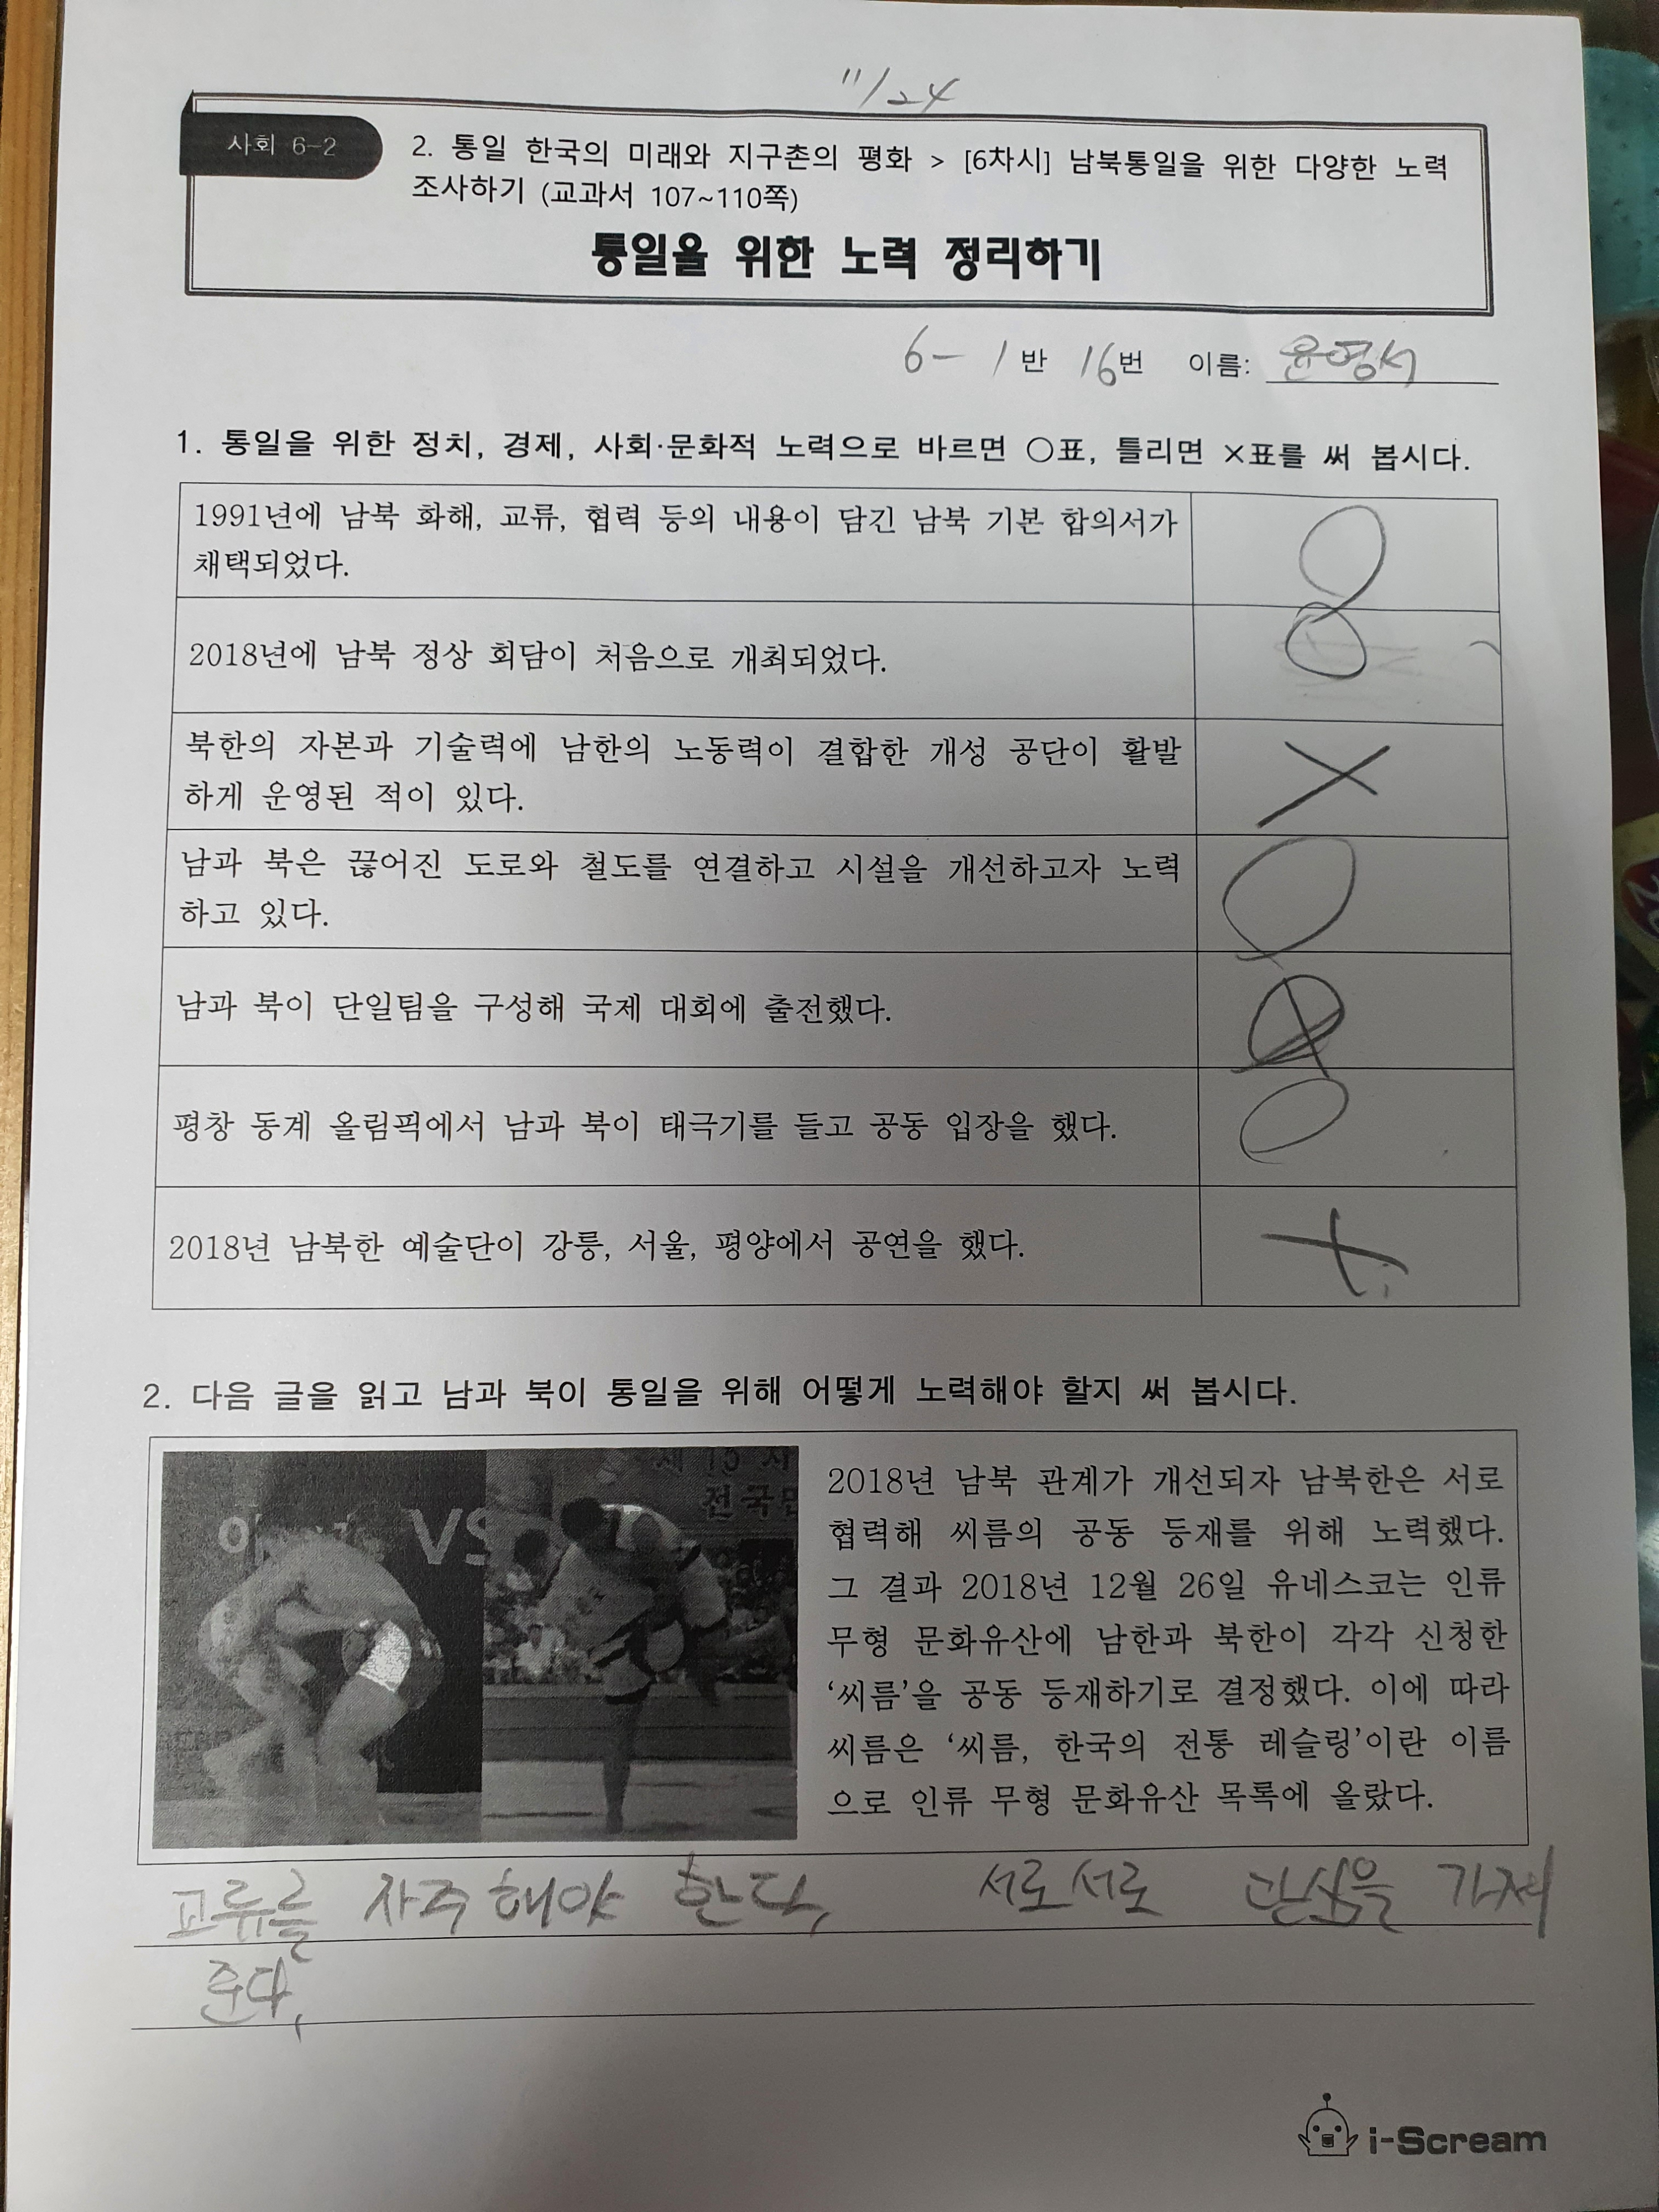 11/24
사회 6-2
2. 통일 한국의 미래와 지구촌의 평화 > [6차시] 남북통일을 위한 다양한 노력
조사하기 (교과서 107~110쪽)
통일을 위한 노력 정리하기
6-1반 16번 이름: 윤영서
1. 통일을 위한 정치, 경제, 사회·문화적 노력으로 바르면 ○표, 틀리면 ×표를 써 봅시다.
1991년에 남북 화해, 교류, 협력 등의 내용이 담긴 남북 기본 합의서가 ○
채택되었다.
2018년에 남북 정상 회담이 처음으로 개최되었다. ○
북한의 자본과 기술력에 남한의 노동력이 결합한 개성 공단이 활발 ×
하게 운영된 적이 있다.
남과 북은 끊어진 도로와 철도를 연결하고 시설을 개선하고자 노력 ○
하고 있다.
남과 북이 단일팀을 구성해 국제 대회에 출전했다.
평창 동계 올림픽에서 남과 북이 태극기를 들고 공동 입장을 했다. ○
2018년 남북한 예술단이 강릉, 서울, 평양에서 공연을 했다. ×
2. 다음 글을 읽고 남과 북이 통일을 위해 어떻게 노력해야 할지 써 봅시다.
VS
제15
전국민
2018년 남북 관계가 개선되자 남북한은 서로
협력해 씨름의 공동 등재를 위해 노력했다.
그 결과 2018년 12월 26일 유네스코는 인류
무형 문화유산에 남한과 북한이 각각 신청한
‘씨름’을 공동 등재하기로 결정했다. 이에 따라
씨름은 ‘씨름, 한국의 전통 레슬링’이란 이름
으로 인류 무형 문화유산 목록에 올랐다.
교류를 자주해야 한다, 서로서로 관심을 가져
준다,
i-Scream